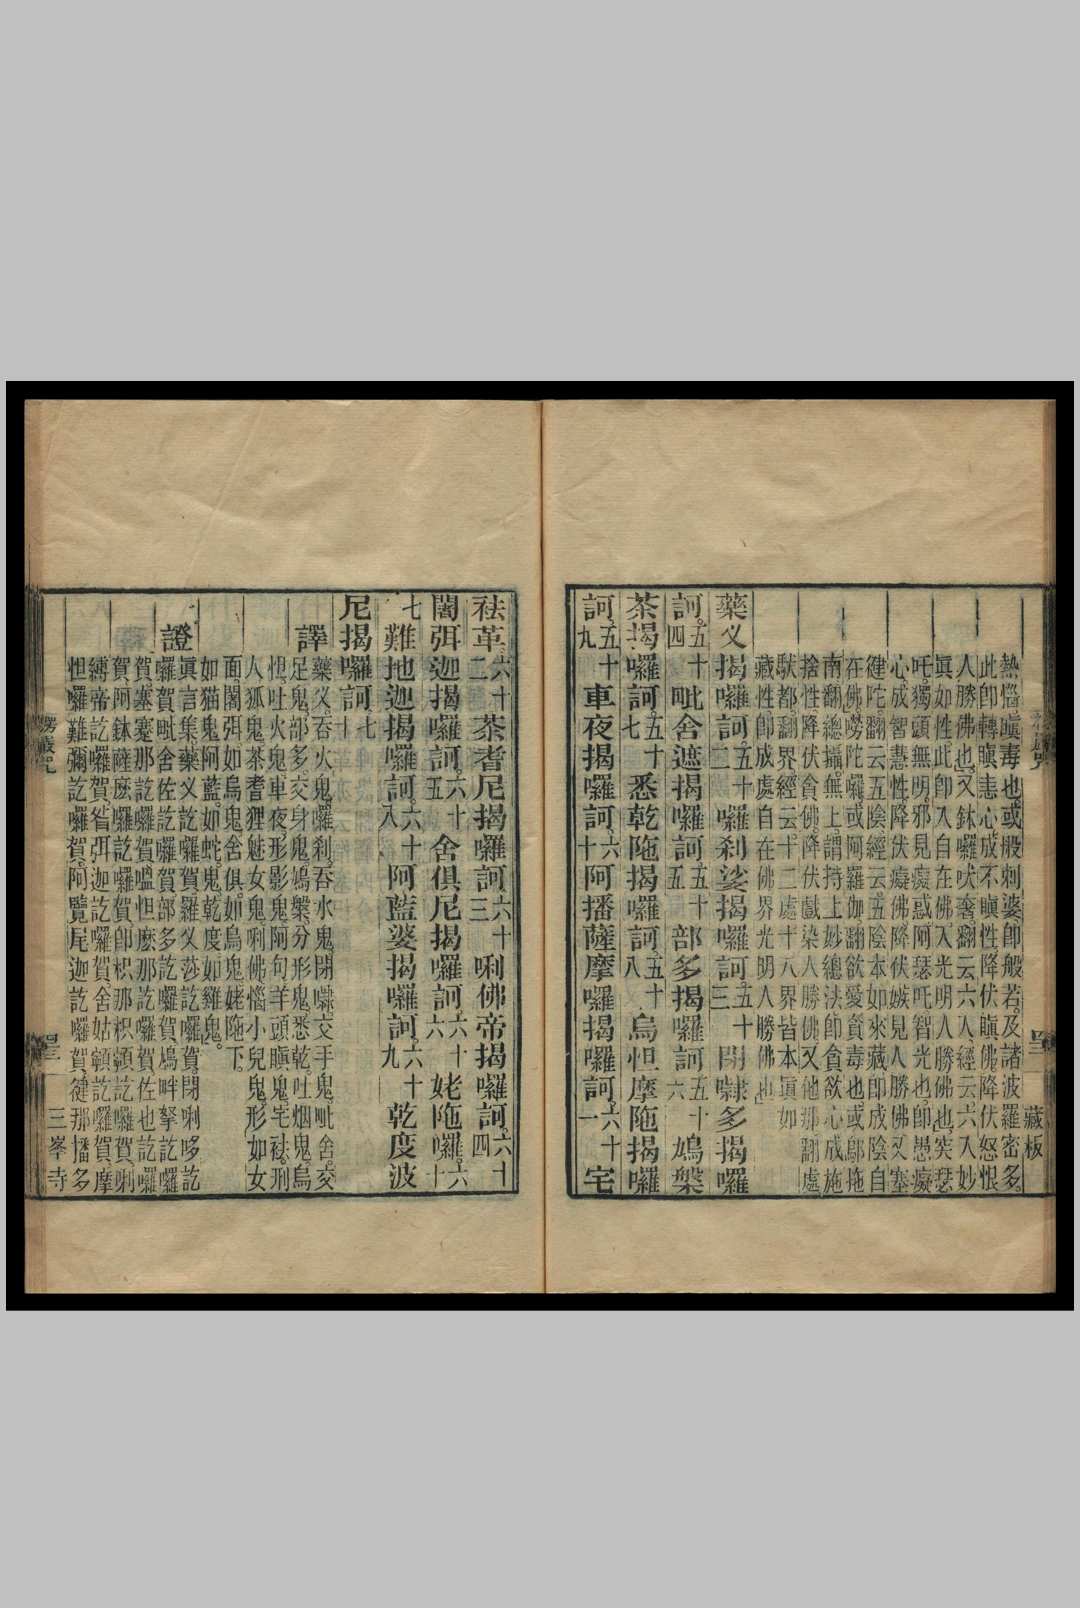 熱惱瞋毒也或般刺婆卽般若及諸波羅密多
此卽轉瞋恚心成不瞋性降伏瞋佛降伏怒恨
人勝佛也又鉢囉吠奢翻云六人經云六入妙
眞如性此卽入自在佛入光明人勝佛也突瑟
吒獨頭無明邪見癡惑阿瑟吒智光也卽愚癡
心成智慧性降伏癡佛降伏嫉見人勝佛又塞
建陀翻云五陰經云五陰本如來藏卽成陰自
在佛嘮陀囉或阿羅伽翻欲愛貪毒也或鄔拖
南翻總攝無上謂持上妙總法卽貪欲心成施
捨性降伏貪佛降伏戲染人勝佛又他那翻處
馱都翻界經云十二處十八界皆本眞如
藏性卽成處自在佛界光明人勝佛也
藥叉揭囉訶五十二囉剎娑揭囉訶五十三閉㘑多揭囉
訶五十四毗舍遮揭囉訶五十五部多揭囉訶五十六鳩槃
茶揭囉訶五十七悉乾陁揭囉訶五十八烏怛摩陁揭囉
訶五十九車夜揭囉訶六十阿播薩摩囉揭囉訶六十一宅
袪革六十二茶耆尼揭囉訶六十三唎佛帝揭囉訶六十四
闍弭迦揭囉訶六十五舍俱尼揭囉訶六十六姥陁囉六十
七難地迦揭囉訶六十八阿藍婆揭囉訶六十九乾度波
尼揭囉訶七十
譯藥叉吞火鬼囉剎吞水鬼閉㘑交手鬼毗舍交
足鬼部多交身鬼鳩槃分形鬼悉乾吐烟鬼烏
怛吐火鬼車夜形影鬼阿句羊頭瞋鬼宅袪刑
人狐鬼茶耆狸魅女鬼唎佛惱小兒鬼形如女
面闍弭如烏鬼舍俱如烏鬼姥陁下
如猫鬼阿藍如蛇鬼乾度如雞鬼
證眞言集藥义訖囉賀羅义莎訖囉賀閉唎哆訖
囉賀毗舍佐訖囉賀部多訖囉賀鳩畔拏訖囉
賀塞蹇那訖囉賀嗢怛麽那訖囉賀佐也訖囉
賀阿鉢薩麽囉訖囉賀卽枳那枳顊訖囉賀唎
縛帝訖囉賀昝弭迦訖囉賀舍姑顊訖囉賀摩
怛囉難彌訖囉賀阿覽尾迦訖囉賀犍那播多
楞嚴咒
三峯寺
藏板